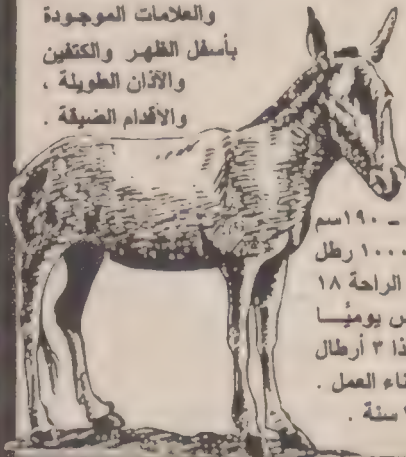 والعلامات الموجودة
بأسفل الظهر والكتفين
والآذان الطويلة ،
والأقدام الضيقة .
- ١٩٠سم
١٠٠٠ رطل
الراحة ١٨
يوميًا
٣ أرطال
العمل .
سنة .